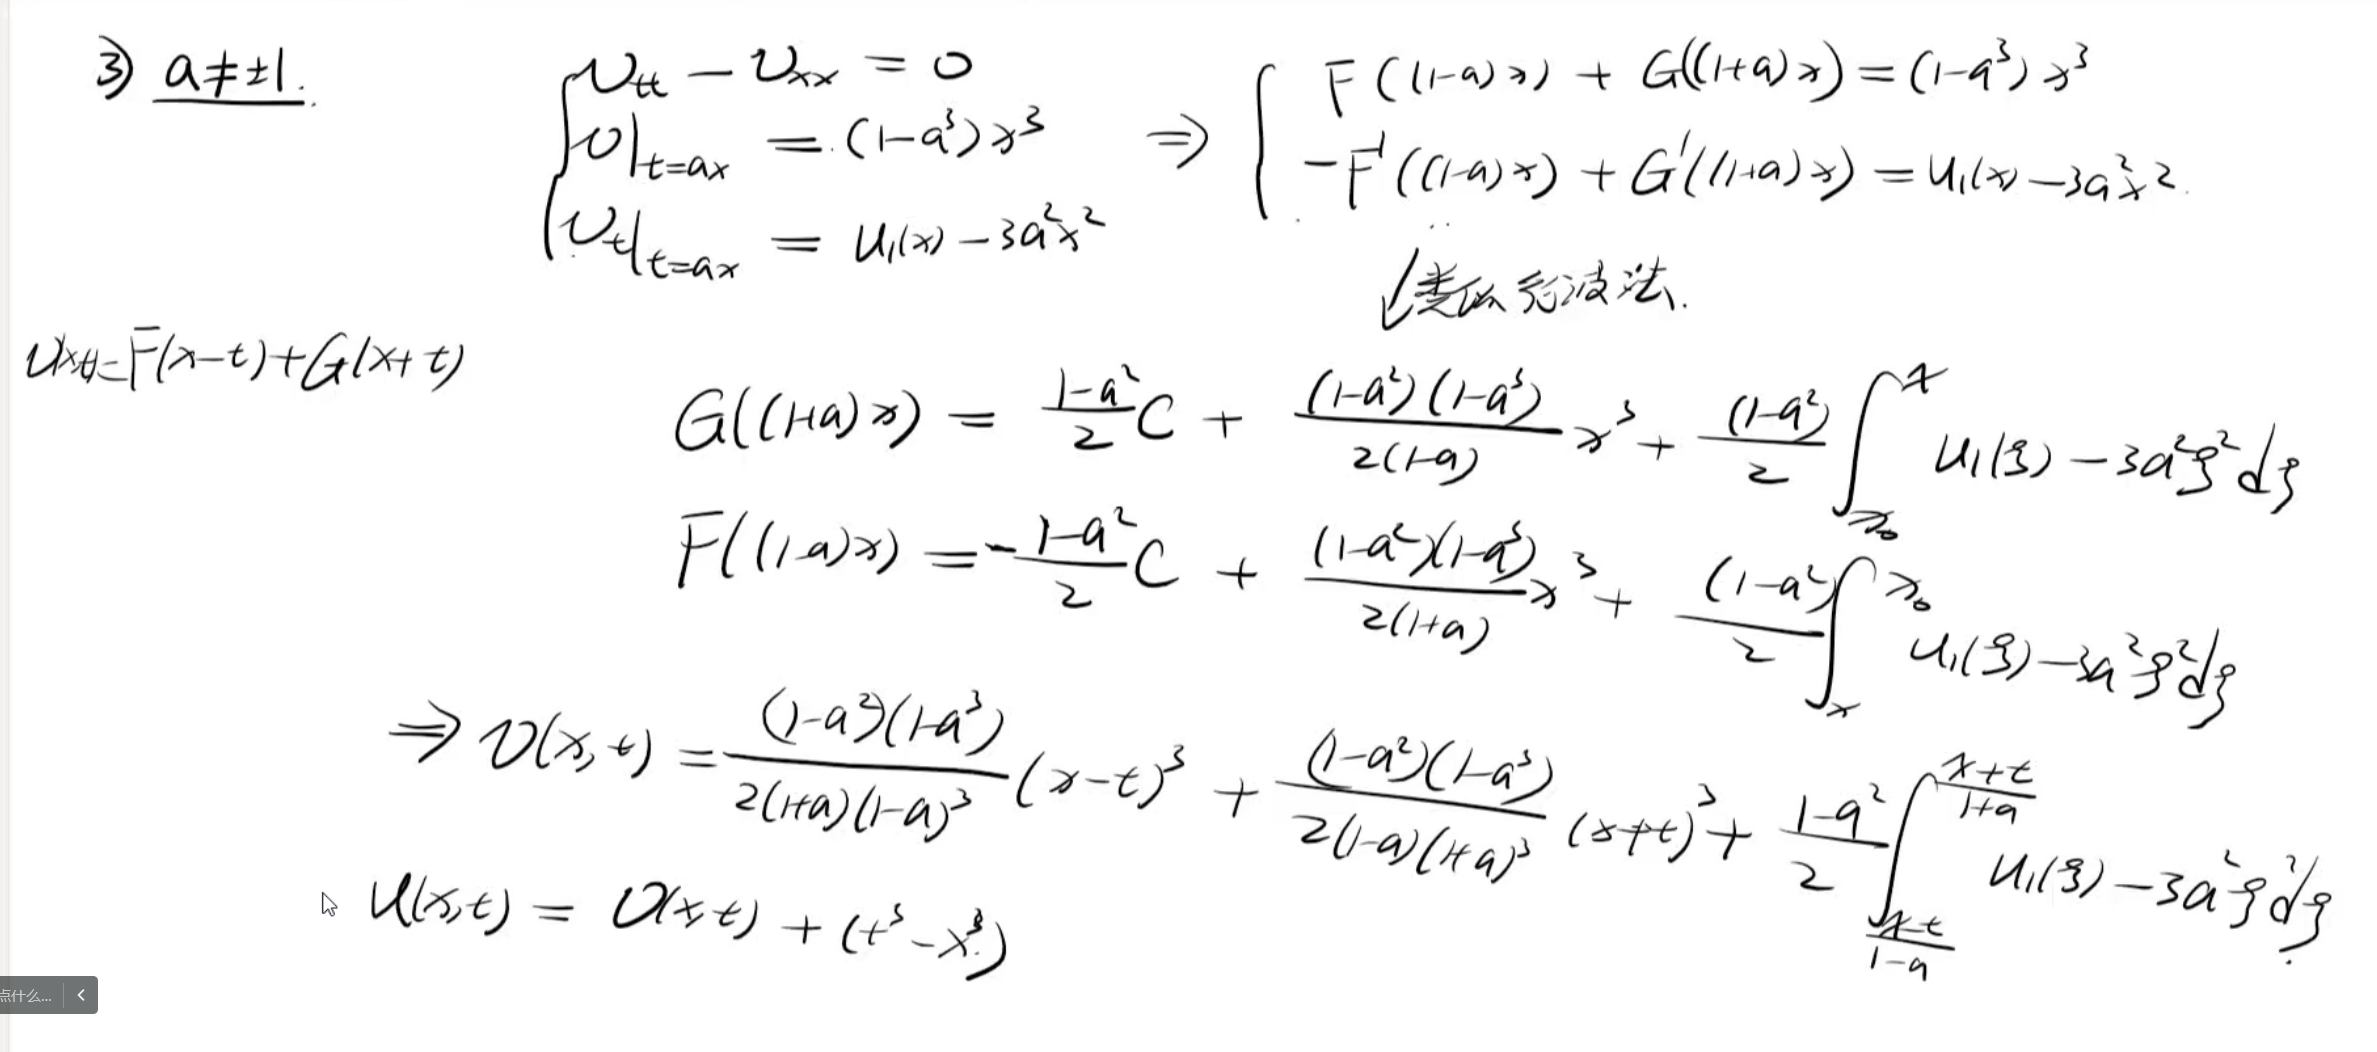 3) a≠±1.
{ v_tt − v_xx = 0
v|_{t=ax} = (1−a³)x³
v_t|_{t=ax} = u₁(x) − 3a²x²
⇒ { F((1−a)x) + G((1+a)x) = (1−a³)x³
−F'((1−a)x) + G'((1+a)x) = u₁(x) − 3a²x².
↓ 类似行波法.
v(x,t) = F(x−t) + G(x+t)
G((1+a)x) = \frac{1−a²}{2} C + \frac{(1−a²)(1−a³)}{2(1−a)} x³ + \frac{(1−a²)}{2} ∫_{x₀}^{x} u₁(ξ) − 3a²ξ² dξ
F((1−a)x) = −\frac{1−a²}{2} C + \frac{(1−a²)(1−a³)}{2(1+a)} x³ + \frac{(1−a²)}{2} ∫_{x}^{x₀} u₁(ξ) − 3a²ξ² dξ
⇒ v(x,t) = \frac{(1−a²)(1−a³)}{2(1+a)(1−a)³} (x−t)³ + \frac{(1−a²)(1−a³)}{2(1−a)(1+a)³} (x+t)³ + \frac{1−a²}{2} ∫_{\frac{x−t}{1−a}}^{\frac{x+t}{1+a}} u₁(ξ) − 3a²ξ² dξ.
u(x,t) = v(x,t) + (t³ − x³)
点什么...